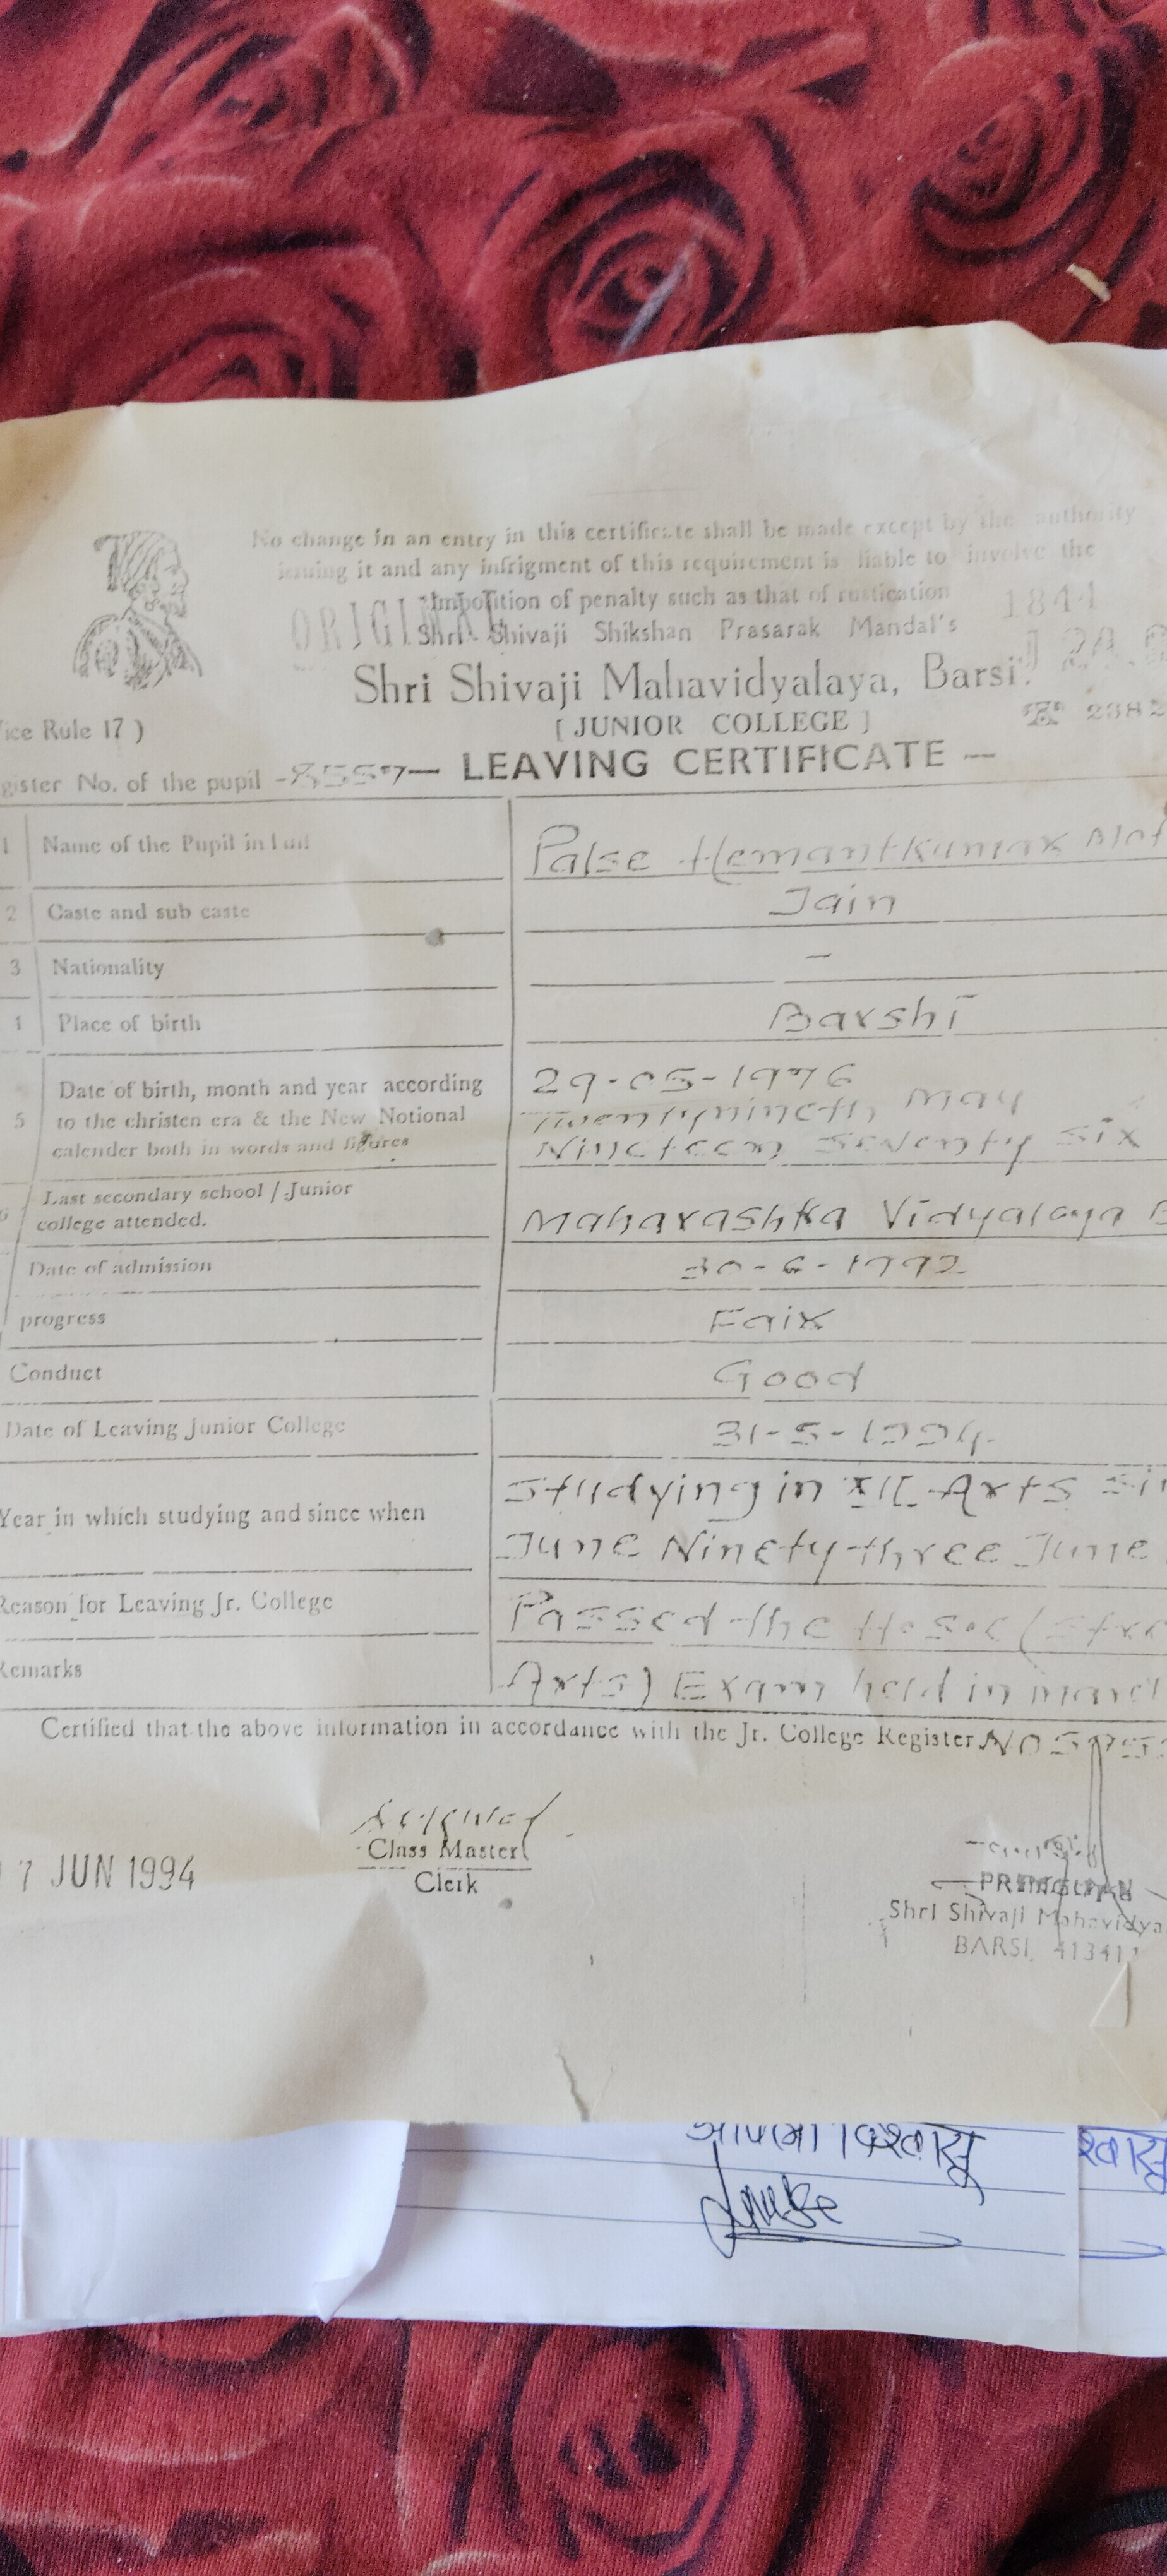 No change in an entry in this certificate shall be made except by the authority
issuing it and any infrigment of this requirement is liable to involve the
imposition of penalty such as that of rustication
ORIGINAL
1844
Shri Shivaji Shikshan Prasarak Mandal's
Shri Shivaji Mahavidyalaya, Barsi.
ice Rule 17 )
[ JUNIOR COLLEGE ]
☎ 2382
gister No. of the pupil - 8557 — LEAVING CERTIFICATE —
1 Name of the Pupil in Full Palse Hemantkumar Mot
2 Caste and sub caste Jain
3 Nationality –
4 Place of birth Barshi
5 Date of birth, month and year according
to the christen era & the New Notional
calender both in words and figures
29-05-1976
Twentynineth May
Nineteen Seventy Six
6 Last secondary school / Junior
college attended. Maharashtra Vidyalaya B
Date of admission 30-6-1992
progress Fair
Conduct Good
Date of Leaving Junior College 31-5-1994
Year in which studying and since when
Studying in XII Arts Sin
June Ninety three June
Reason for Leaving Jr. College Passed the H.S.C (
Remarks Arts) Exam held in march
Certified that the above information in accordance with the Jr. College Register
7 JUN 1994
Class Master
Clerk
Shri Shivaji Mahavidya
BARSI 413411
आपला विश्वासू
श्वासू